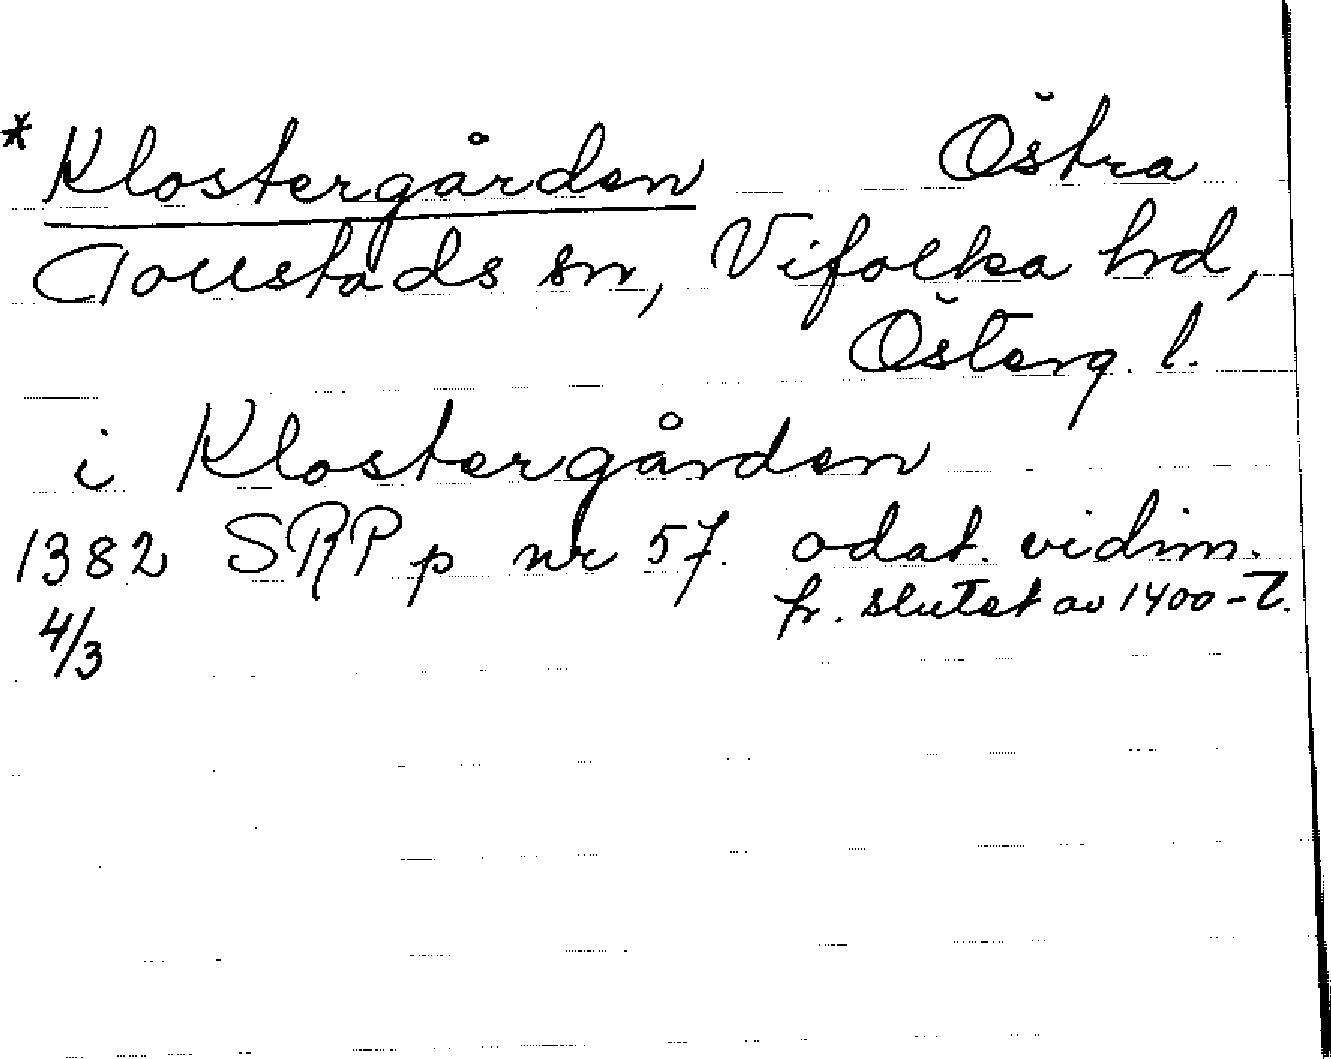 * Klostergården Östra
Tollstads sn, Vifolka hrd,
Österg. l.
i Klostergården
1382 SRP p nr 57. odat. vidim.
4/3 fr. slutet av 1400-t.